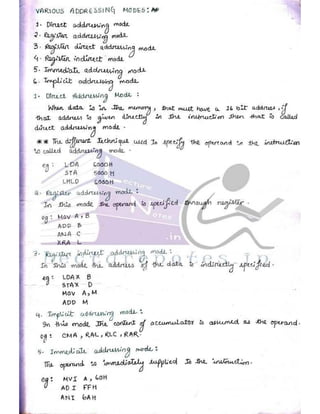 VARIOUS ADDRESSING MODES:
1. Direct addressing mode
2. Register addressing mode.
3. Register direct addressing mode
4. Register indirect mode
5. Immediate addressing mode
6. Implicit addressing mode
1. Direct Addressing Mode :
When data is in the memory, that must have a 16 bit address, if
that address is given directly in the instruction then that is called
direct addressing mode.
** The different technique used to specify the operand to the instruction
is called addressing mode.
eg : LDA 6000H
STA 5000H
LHLD 6000H
2. Register addressing mode :
In this mode the operand is specified through register.
eg : MOV A, B
ADD B
ANA C
XRA L
3. Register indirect addressing mode :
In this mode the address of the data is indirectly specified.
eg : LDAX B
STAX D
MOV A, M
ADD M
4. Implicit addressing mode :
In this mode the content of accumulator is assumed as the operand.
eg : CMA, RAL, RLC, RAR.
5. Immediate addressing mode :
The operand is immediately supplied to the instruction.
eg : MVI A, 60H
ADI FFH
ANI 6AH